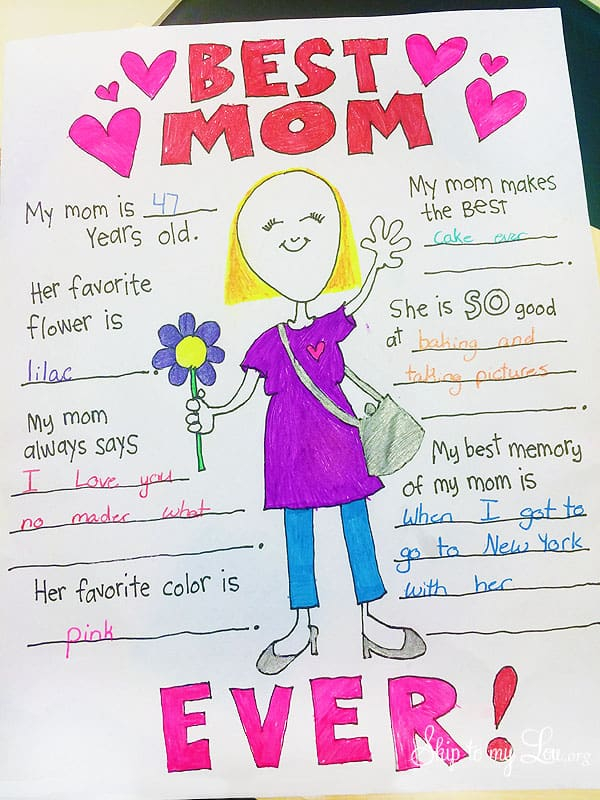 BEST
MOM
My mom is 47
Years old.
Her favorite
flower is
lilac.
My mom
always says
I Love you
no mader what
.
Her favorite color is
pink.
My mom makes
the BEST
cake ever
.
She is SO good
at baking and
taking pictures
.
My best memory
of my mom is
when I got to
go to New York
with her
.
EVER!
Skip to my Lou.org